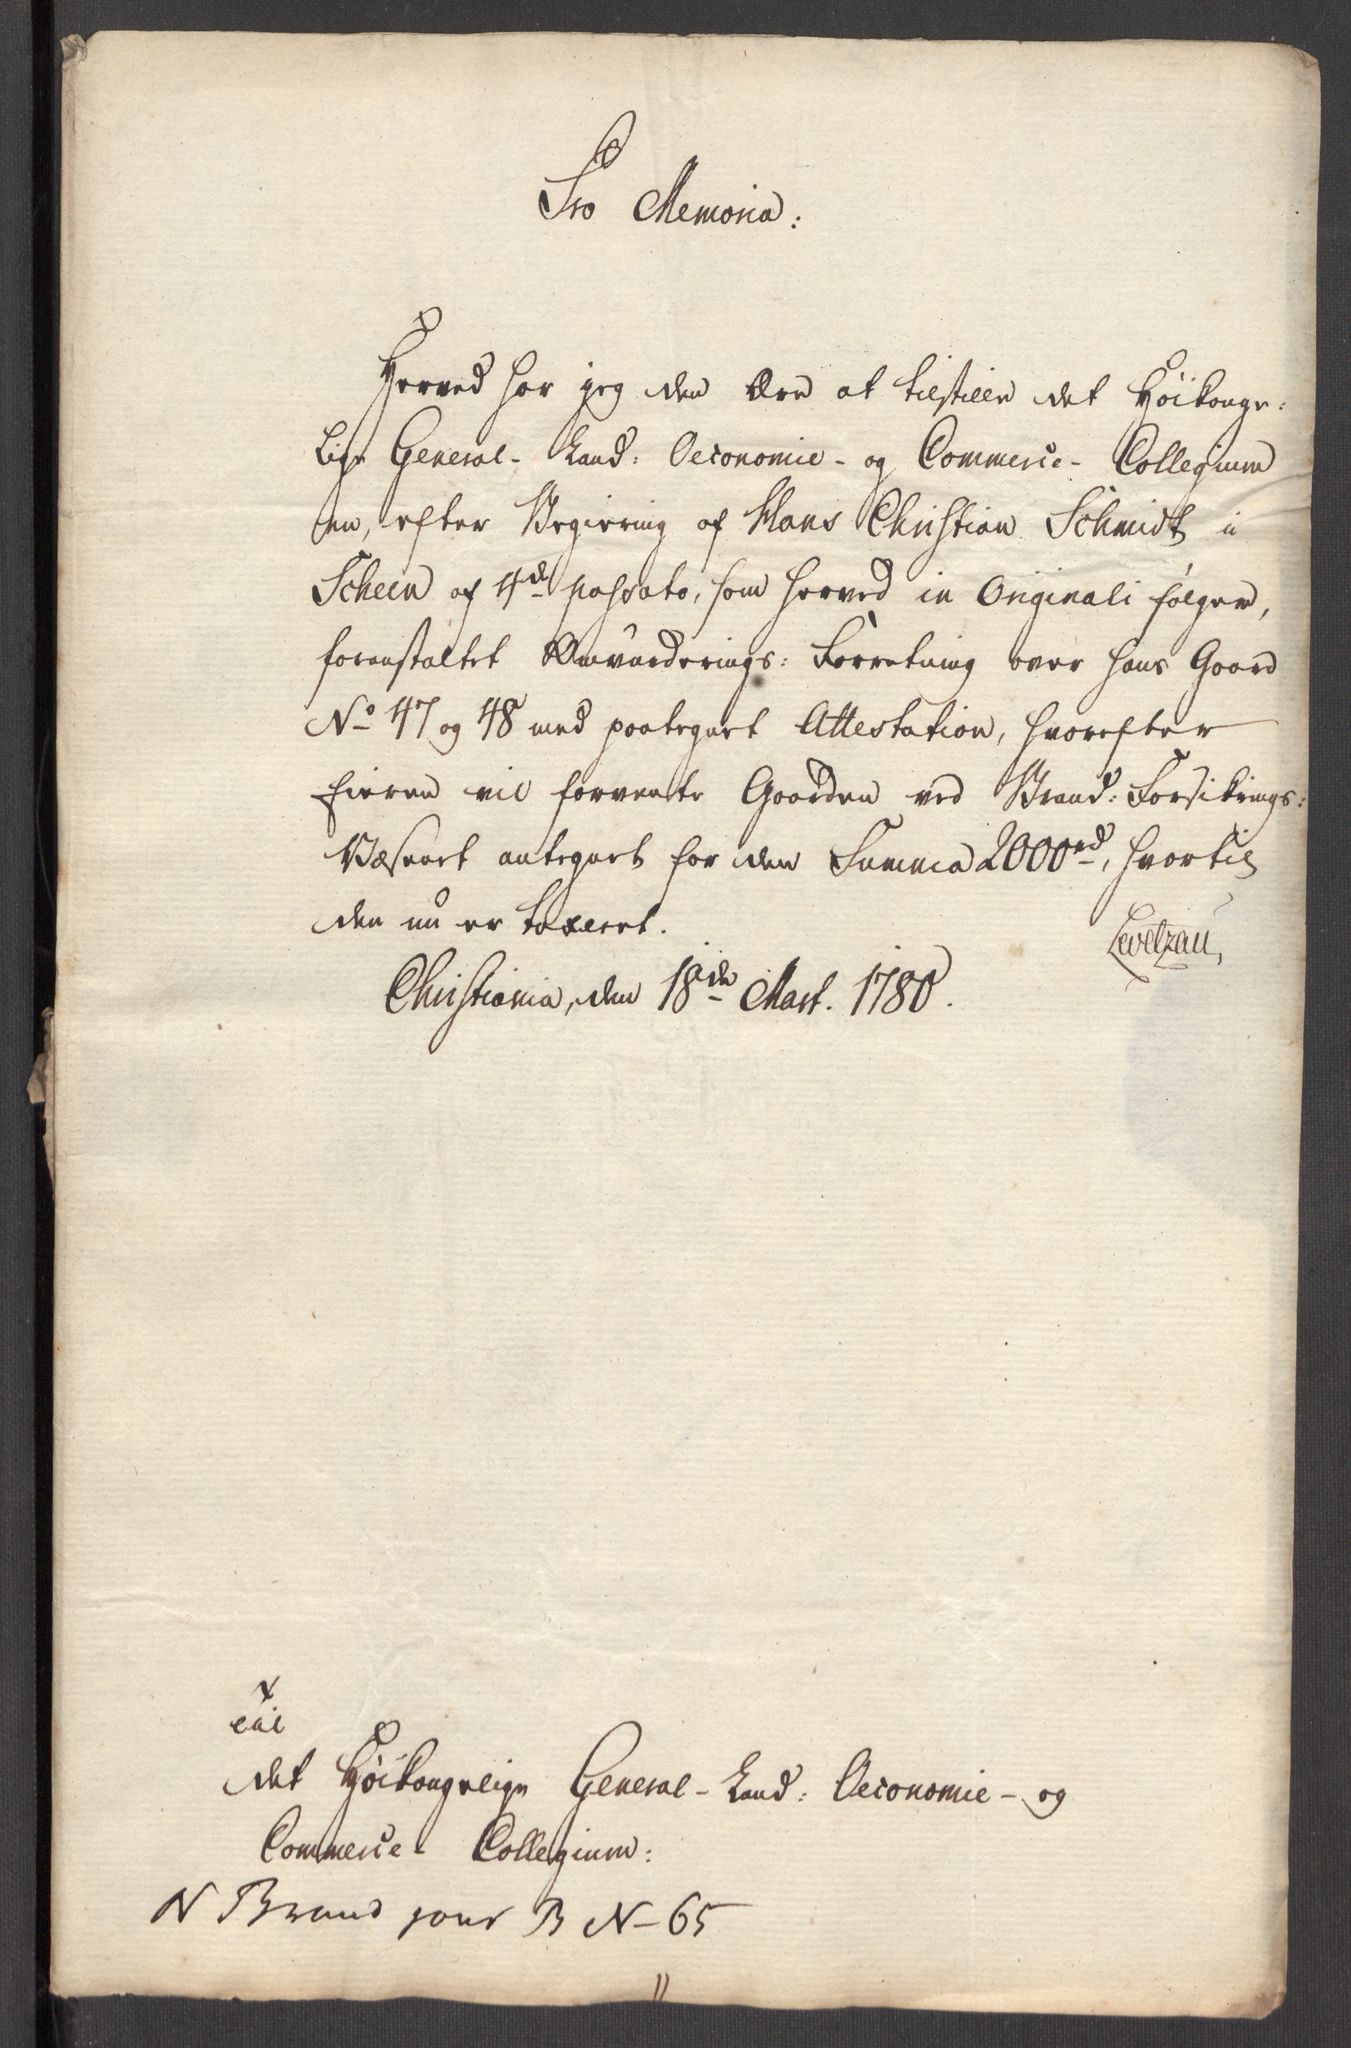 Pro Memoria:
Herved har jeg den Ære at tilstille det Höikonge:
lige General- Land: Oeconomie- og Commerce- Collegium
en, efter Begiering af Hans Christian Schmidt i
Scheen af 4de passato, som herved in Originali følger,
foranstaltet Omvurderings: Forretning over hans Gaard
No 47 og 48 med paategnet Attestation, hvorefter
Eieren vil forvente Gaarden ved Brand: Forsikrings:
Væsenet antegnet for den Summa 2000rd, hvortil
den nu er taxeret.
Levetzau,
Christiania, den 18de Mart. 1780.
til
det Höikongelige General- Land: Oeconomie- og
Commerce- Collegium:
N Brand jour B N- 65